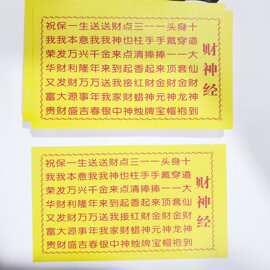 财神经
十道大仙财神到
身穿一套金龙袍
头戴一顶财神帽
一手捧来金元宝
一手捧起财神牌
三柱清香红蜡烛
点也点起接财神
财神来到我家中
送我金来送我银
送我千年万年春
生意兴隆万事吉
一本万利财源盛
保我发财发大财
祝我荣华又富贵
财神经
十道大仙财神到
身穿一套金龙袍
头戴一顶财神帽
一手捧来金元宝
一手捧起财神牌
三柱清香红蜡烛
点也点起接财神
财神来到我家中
送我金来送我银
送我千年万年春
生意兴隆万事吉
一本万利财源盛
保我发财发大财
祝我荣华又富贵